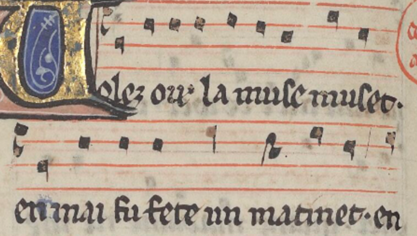 Volez oir la muse muset.
en mai fu fete un matinet. en